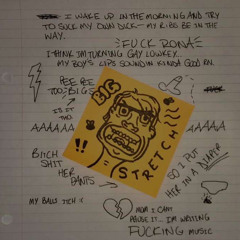 I WAKE UP IN THE MORNING AND TRY
TO SUCK MY OWN DICK - MY RIBS BE IN THE
WAY.
"FUCK RONA"
I THINK I'M TURNING GAY LOWKEY.
MY BOY'S LIPS SOUNDIN KINDA GOOD RN.
PEE PEE
TOO BIG
IS IT
TOO
BIG
STRETCH
AAAAAA
AAAAAA
BITCH
SHIT
HER
PANTS
SO I PUT
HER IN A DIAPER
MY BALLS ITCH :(
MOM I CAN'T
PAUSE IT... I'M WRITING
FUCKING MUSIC